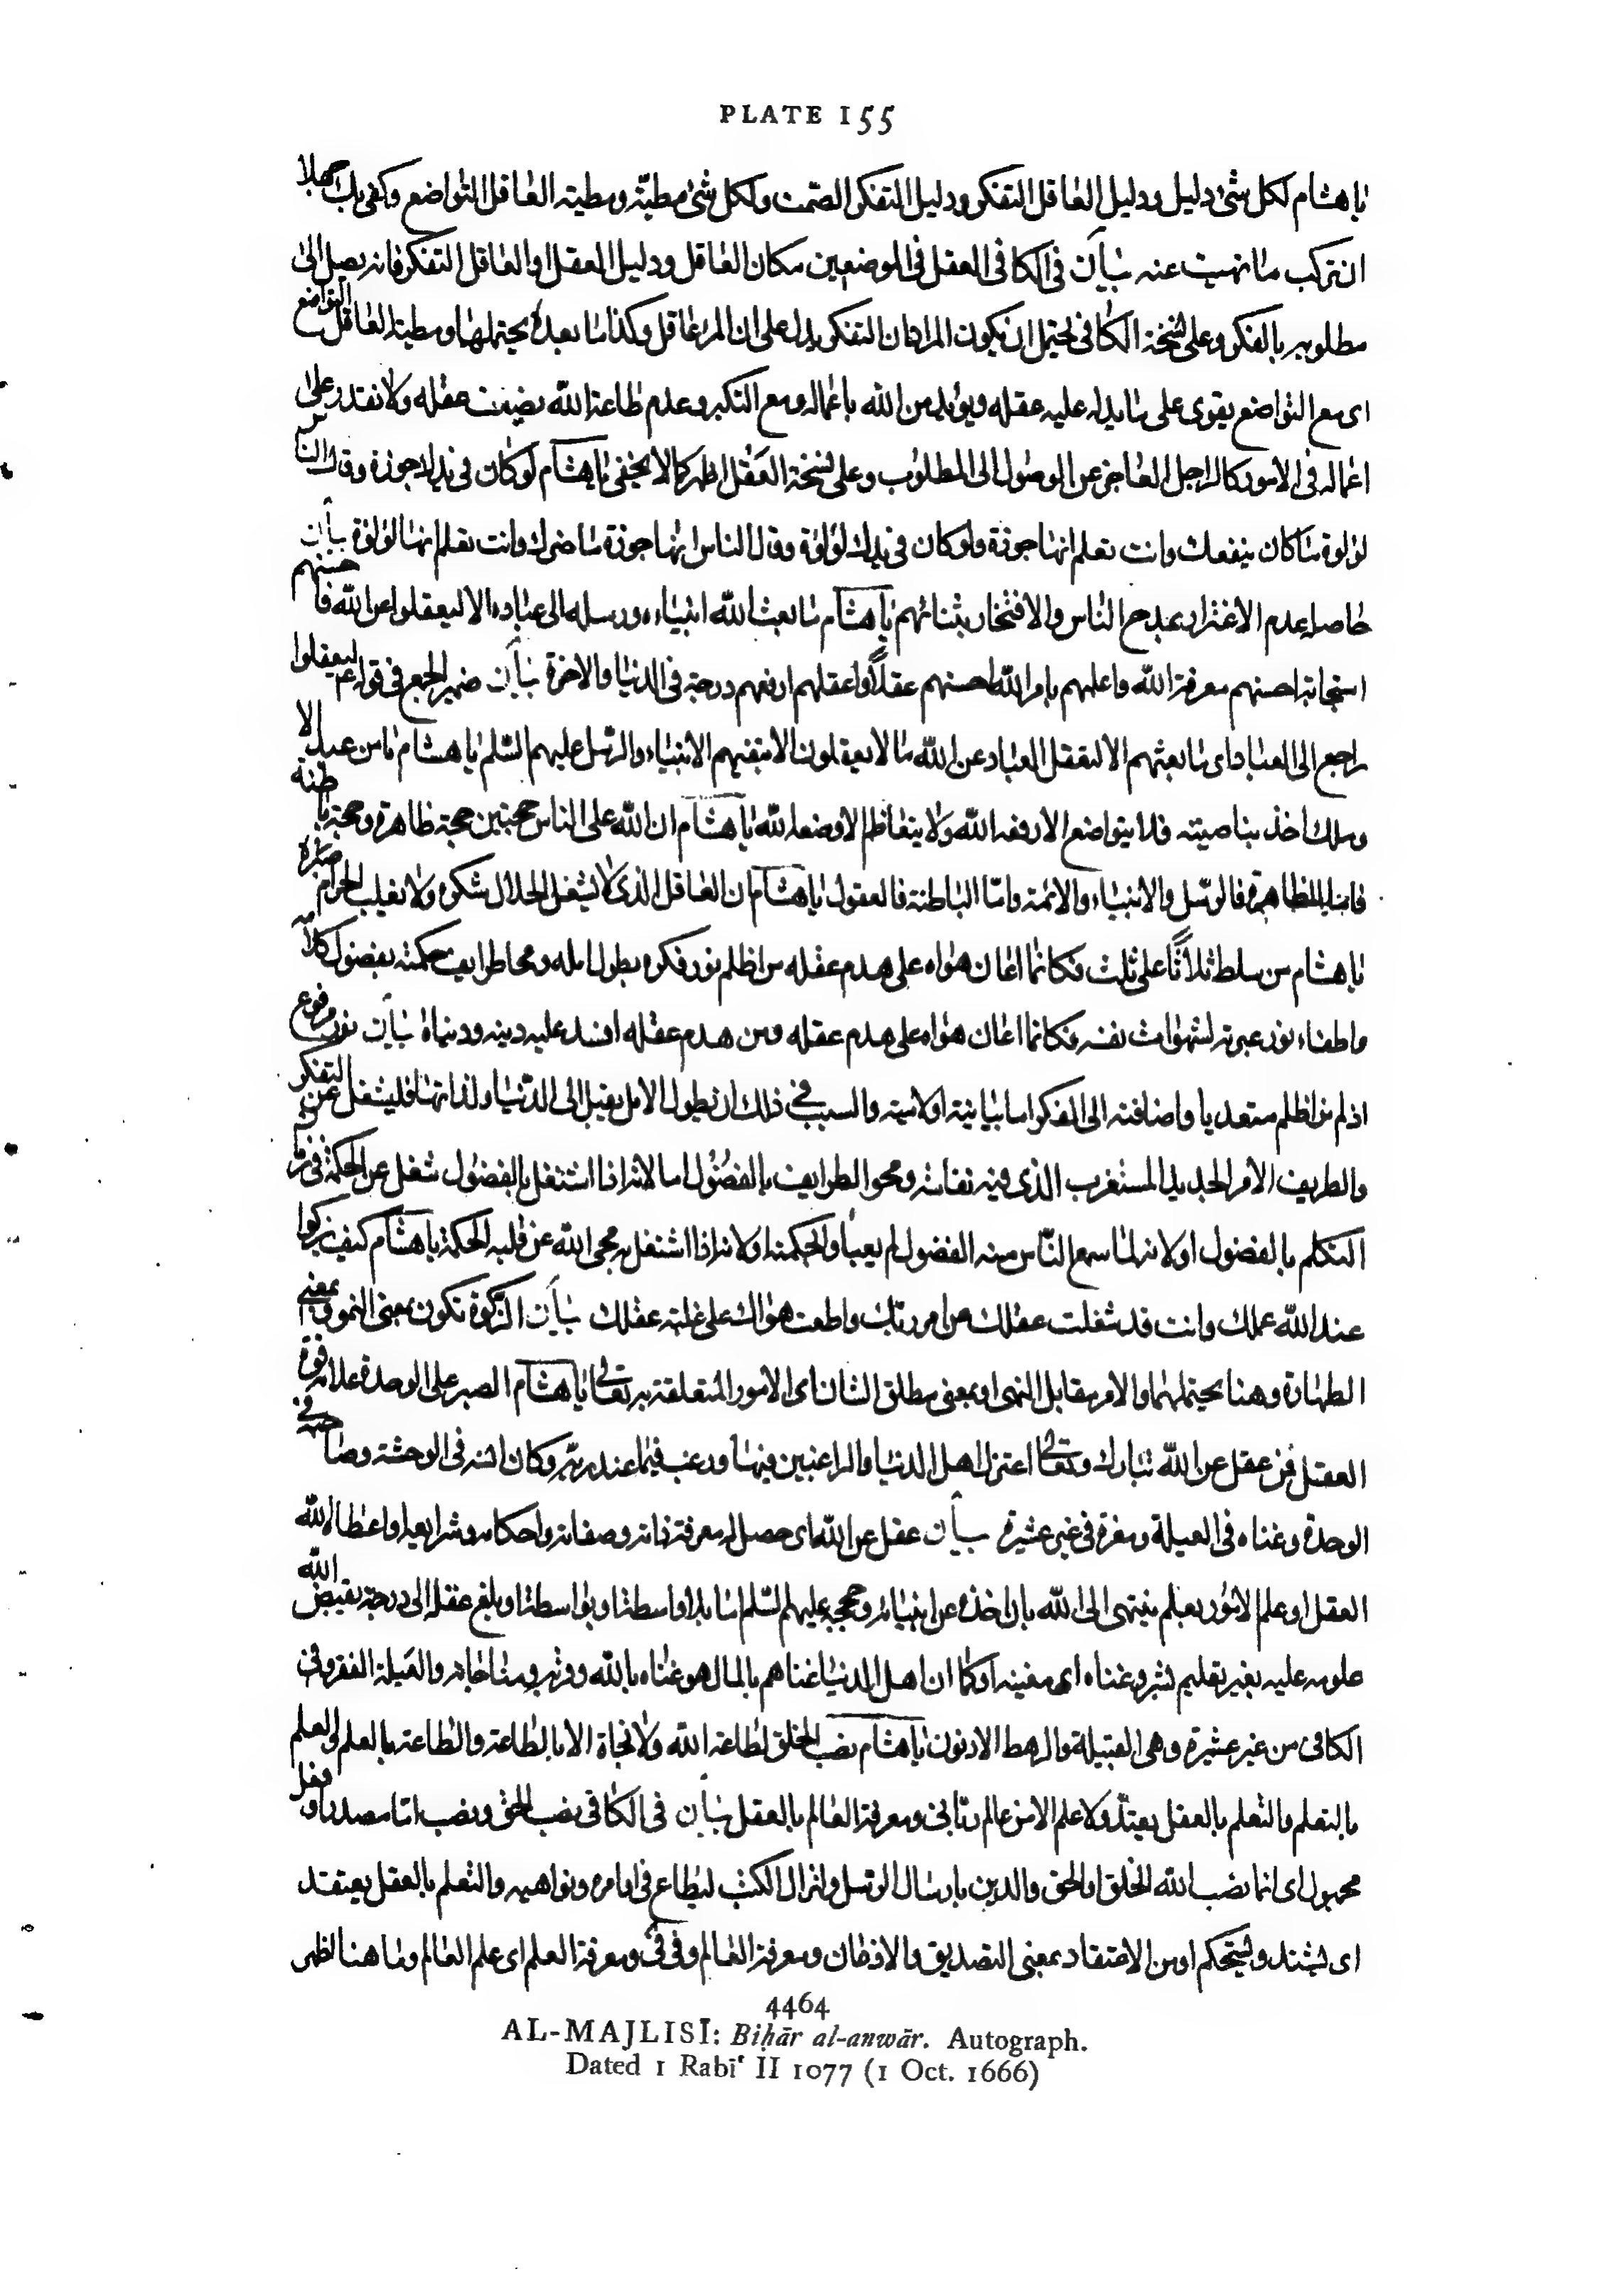 PLATE 155
يا هشام لكل شئ دليل ودليل العاقل التفكر ودليل التفكر الصمت ولكل شئ مطيّة ومطية العاقل التواضع وكفى بك جهلا
ان تركب ما نهيت عنه بيان في الكافي العقل في الموضعين مكان العاقل ودليل العقل او العاقل التفكر فانه يصل الى
مطلوبه بالفكر وعلى نسخة الكافي يحتمل ان يكون المراد ان التفكر يدل على ان المرء عاقل وكذا ما بعده يحتملها ومطية العاقل التواضع
اى مع التواضع يقوى على ما يدله عليه عقله ويؤيد من الله باعماله ومع التكبر وعدم طاعة الله يضعف عقله ولا يقدر على
اعماله في الامور كالراجل العاجز عن الوصول الى المطلوب وعلى نسخة العقل اظهر كما لا يخفى يا هشام لو كان في يدك جوزة وقال الناس
لؤلؤة ما كان ينفعك وانت تعلم انها جوزة ولو كان في يدك لؤلؤة وقال الناس انها جوزة ما ضرك وانت تعلم انها لؤلؤة بيان
حاصله عدم الاغترار بمدح الناس والافتخار بثنائهم يا هشام ما بعث الله انبياءه ورسله الى عباده الا ليعقلوا عن الله فاحسنهم
استجابة احسنهم معرفة لله واعلمهم بامر الله احسنهم عقلاً واعقلهم ارفعهم درجة في الدنيا والاخرة بيان ضمير الجمع في قوله ع ليعقلوا
راجع الى العباد اى ما بعثهم الا ليعقل العباد عن الله ما لا يعقلون الا بتفهيم الانبياء والرسل عليهم السّلم يا هشام ما من عبد الا
وملك اخذ بناصيته فلا يتواضع الا رفعه الله ولا يتعاظم الا وضعه الله يا هشام ان لله على الناس حجتين حجة ظاهرة وحجة باطنة
فاما الظاهرة فالرسل والانبياء والائمة وامّا الباطنة فالعقول يا هشام ان العاقل الذى لا يشغل الحلال شكره ولا يغلب الحرام صبره
يا هشام من سلط ثلاثاً على ثلث فكانما اعان هواه على هدم عقله من اظلم نور فكره بطول امله ومحا طرايف حكمته بفضول كلامه
واطفاء نور عبرته بشهوات نفسه فكانما اعان هواه على هدم عقله ومن هدم عقله افسد عليه دينه ودنياه بيان نور مرفوع
اذ لم نر اظلم متعديا واضافته الى الفكر اما بيانية او لامية والسبب في ذلك ان بطول الامل يقبل الى الدّنيا ولذاتها فيشغل عن التفكر
والطريف الامر الجديد المستغرب الذى فيه نفاسة ومحو الطرايف بالفضول اما لانه اذا اشتغل بالفضول شغل عن الحكمة في زمان
التكلم بالفضول او لانه لما سمع النّاس منه الفضول لم يعبأوا بحكمته او لانه اذا اشتغل به محى الله عن قلبه الحكمة يا هشام كيف يزكوا
عند الله عملك وانت قد شغلت عقلك عن امر ربّك واطعت هواك على غلبة عقلك بيان الزكوة تكون بمعنى النمو وبمعنى
الطهارة وهنا يحتملهما والامر مقابل النهى او بمعنى مطلق الشان اى الامور المتعلقة به تعالى يا هشام الصبر على الوحدة علامة قوة
العقل فمن عقل عن الله تبارك وتعالى اعتزل اهل الدنيا والراغبين فيها ورغب فيما عند ربّه وكان انسه في الوحشة وصاحبه في
الوحدة وغناه في العيلة ومعزه في غير عشيرة بيان عقل عن الله اى حصل له معرفة ذاته وصفاته واحكامه وشرايعه او اعطاه الله
العقل او علم الامور بعلم ينتهى الى الله بان اخذه عن انبيائه وحججه عليهم السّلم اما بلا واسطة او بواسطة او بلغ عقله الى درجة يفيض الله
علومه عليه بغير تعليم بشر وغناه اى مغنيه او كما ان اهل الدنيا غناهم بالمال هو غناه بالله وقربه ومناجاته والعيلة الفقر وفي
الكافي من غير عشيرة وهى القبيلة والرهط الادنون يا هشام نصب الخلق لطاعة الله ولا نجاة الا بالطاعة والطاعة بالعلم والعلم
بالتعلم والتعلم بالعقل يعتقد ولا علم الا من عالم ربّانى ومعرفة العالم بالعقل بيان في الكافي نصب الحق ونصب اما مصدر او فعل
مجهول اى انما نصب الله الخلق او الحق والدين بارسال الرسل وانزال الكتب ليطاع في اوامره ونواهيه والتعلم بالعقل يعتقد
اى يشتد ويستحكم او من الاعتقاد بمعنى التصديق والاذعان ومعرفة العالم وفي في ومعرفة العلم اى علم العالم وما هنا اظهر
4464
AL-MAJLISĪ: Biḥār al-anwār. Autograph.
Dated 1 Rabīʿ II 1077 (1 Oct. 1666)